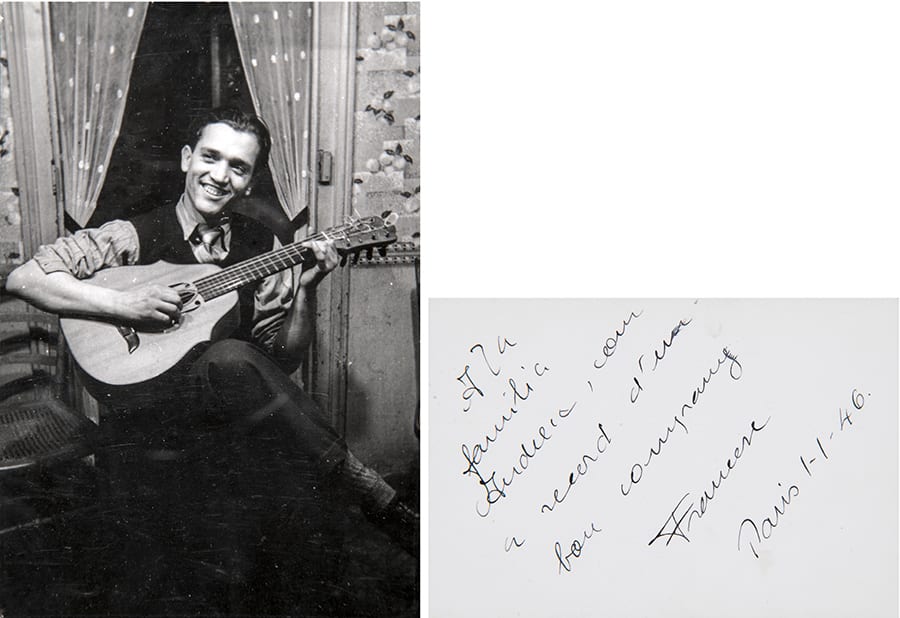 A la
familia
Andreu, com
a record d'un
bon company
Francesc
Paris 1-1-46.